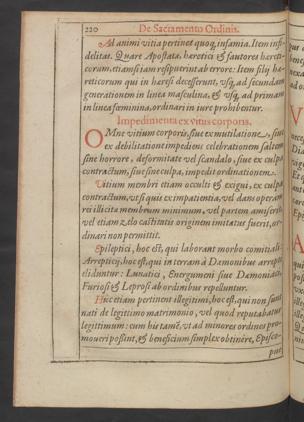 220 De Sacramento Ordinis.
Ad animi vitia pertinet quoq; infamia. Item infi-
delitas. Quare Apostatæ heretici & fautores hereti-
corum, etiamsi iam resipuerint ab errore: Item filij hæ-
reticorum qui in heresi decesserunt, vsq; ad secundam
generationem in linea masculina, & vsq; ad primam
in linea fœminina, ordinari in iure prohibentur.
Impedimenta ex vitus corporis.
OMne vitium corporis, siue ex mutilatione, siue
ex debilitatione impediens celebrationem saltem
sine horrore, deformitate vel scandalo, siue ex culpa
contractum, siue sine culpa, impedit ordinationem.
Vitium membri etiam occulti & exigui, ex culpa
contractum, vt si quis ex impatientia, vel dans operam
rei illicitæ membrum minimum, vel partem amiserit,
vel etiam zelo castitatis originem imitatus fuerit, or-
dinari non permittit.
Epileptici, hoc est, qui laborant morbo comitiali
Arreptitij, hoc est, qui in terram à Dæmonibus arrepti
eliduntur: Lunatici, Energumeni siue Dæmoniaci
Furiosi & Leprosi ab ordinibus repelluntur.
Huc etiam pertinent illegitimi, hoc est, qui non sunt
nati de legitimo matrimonio, vel quod reputabatur
legitimum: cum his tamē, vt ad minores ordines pro-
moueri possint, & beneficium simplex obtinere, Episco-